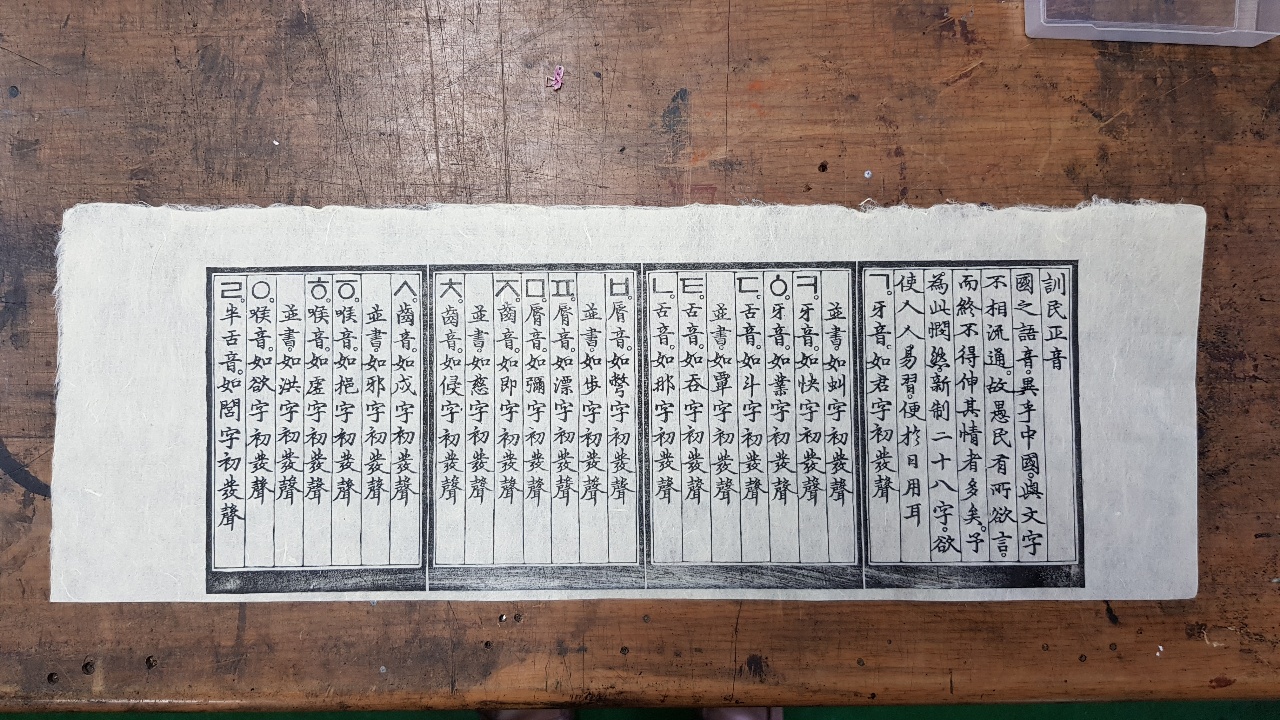 訓民正音
國之語音。異乎中國。與文字
不相流通。故愚民有所欲言。
而終不得伸其情者多矣。予
為此憫然新制二十八字。欲
使人人易習。便於日用耳
ㄱ。牙音。如君字初發聲
並書。如虯字初發聲
ㅋ。牙音。如快字初發聲
ㆁ。牙音。如業字初發聲
ㄷ。舌音。如斗字初發聲
並書。如覃字初發聲
ㅌ。舌音。如呑字初發聲
ㄴ。舌音。如那字初發聲
ㅂ。脣音。如彆字初發聲
並書。如步字初發聲
ㅍ。脣音。如漂字初發聲
ㅁ。脣音。如彌字初發聲
ㅈ。齒音。如即字初發聲
並書。如慈字初發聲
ㅊ。齒音。如侵字初發聲
ㅅ。齒音。如戌字初發聲
並書。如邪字初發聲
ㆆ。喉音。如挹字初發聲
ㅎ。喉音。如虛字初發聲
並書。如洪字初發聲
ㅇ。喉音。如欲字初發聲
ㄹ。半舌音。如閭字初發聲